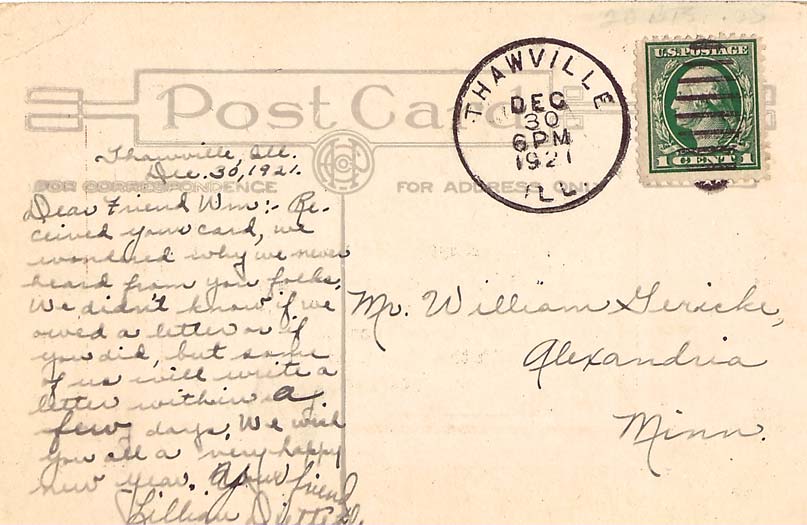 U.S. POSTAGE
1 CENT 1
THAWVILLE
DEC
30
6 PM
1921
ILL
Post Card
FOR CORRESPONDENCE
FOR ADDRESS ONLY
Thawville, Ill.
Dec. 30, 1921.
Dear Friend Wm:- Re-
ceived your card, we
wondered why we never
heard from you folks,
We didn't know if we
owed a letter or if
you did, but some
of us will write a
letter within a
few days. We wish
you all a very happy
new year. Your friend
Lillian
Mr. William Gericke,
Alexandria
Minn.